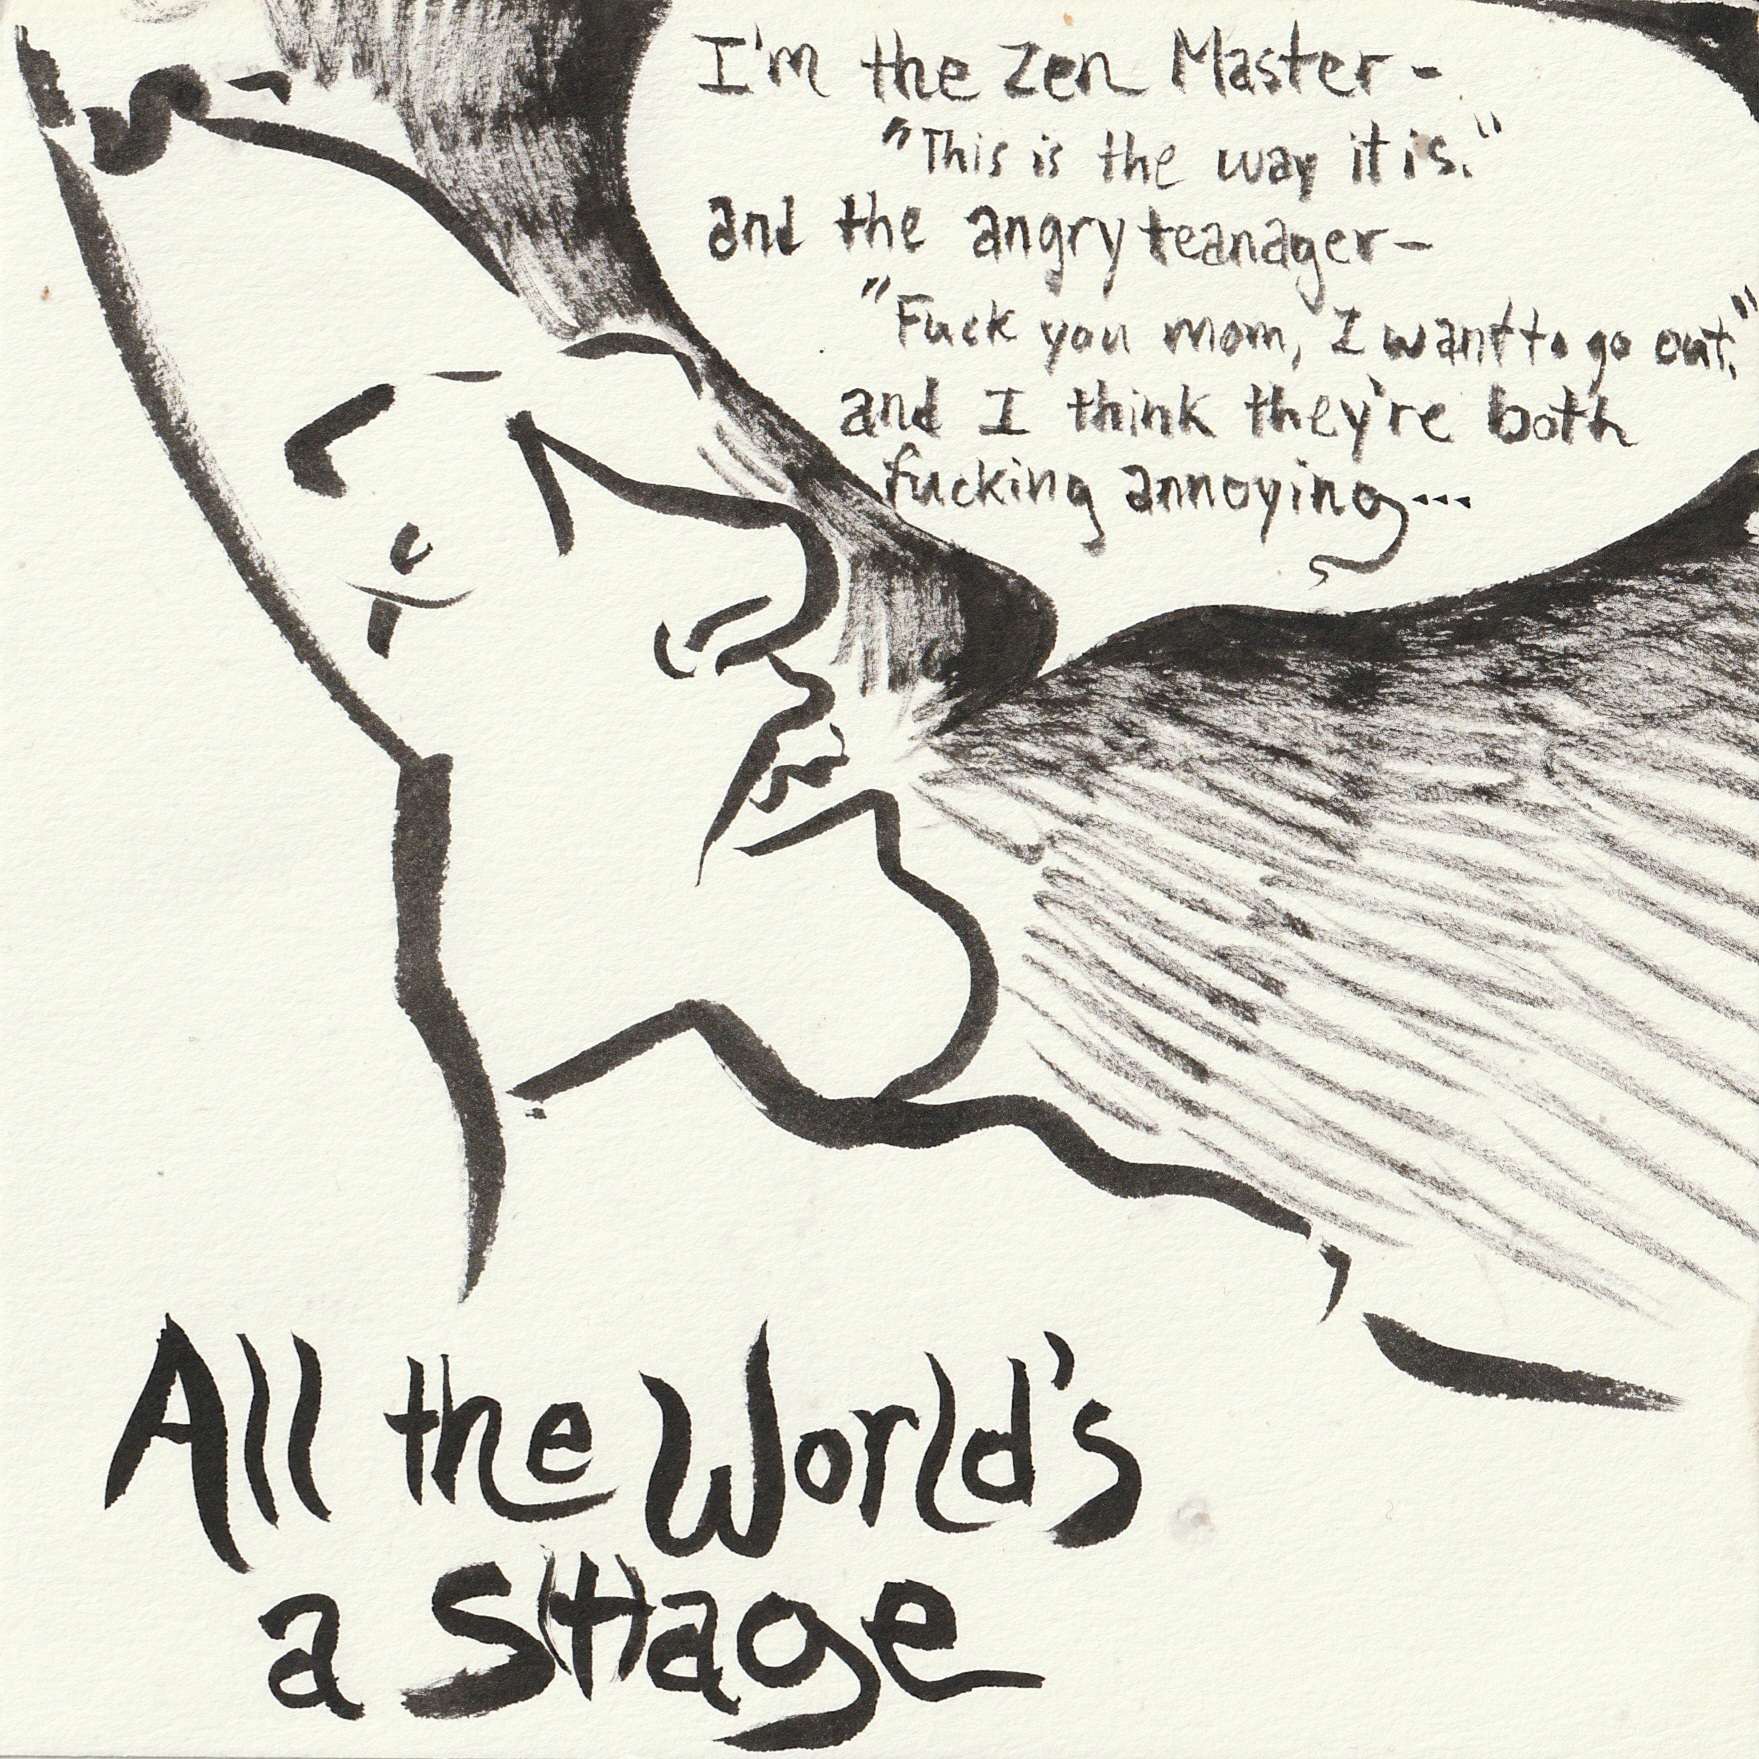 I'm the Zen Master -
"This is the way it is."
and the angry teanager -
"Fuck you mom, I want to go out."
and I think they're both
fucking annoying...
All the World's
a S(t)age